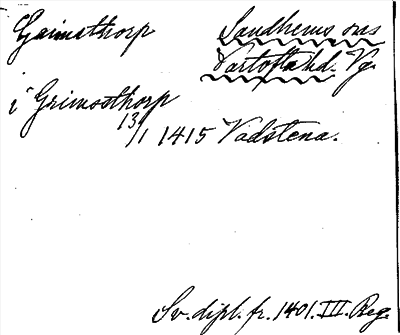 Grimsthorp Sandhems sns
Vartofta hd. Vg.
i Grimosthorp
13/1 1415 Vadstena.
Sv. dipl. fr. 1401. III. Reg.